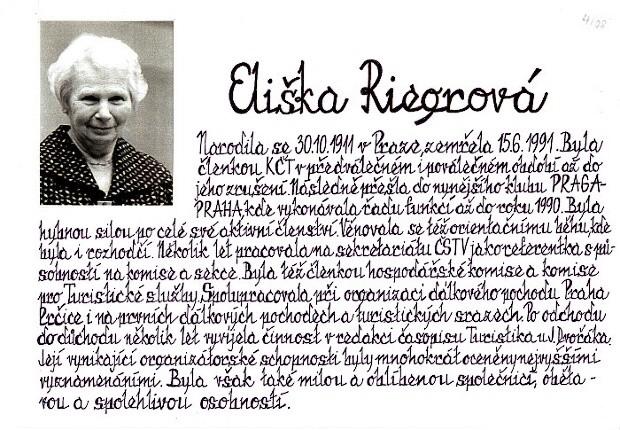 4/98
Eliška Riegrová
Narodila se 30.10.1911 v Praze, zemřela 15.6.1991. Byla
členkou KČT v předválečném i poválečném období až do
jeho zrušení. Následně přešla do nynějšího klubu PRAGA-
PRAHA, kde vykonávala řadu funkcí až do roku 1990. Byla
hybnou silou po celé své aktivní členství. Věnovala se též orientačnímu běhu, kde
byla i rozhodčí. Několik let pracovala na sekretariátu ČSTV jako referentka s pů-
sobností na komise a sekce. Byla též členkou hospodářské komise a komise
pro Turistické služby. Spolupracovala při organizaci dálkového pochodu Praha
Prčice i na prvních dálkových pochodech a turistických srazech. Po odchodu
do důchodu několik let vyvíjela činnost v redakci časopisu Turistika u J. Dvořáka.
Její vynikající organizátorské schopnosti byly mnohokrát oceněny nejvyššími
vyznamenáními. Byla však také milou a oblíbenou společnicí, oběta-
vou a spolehlivou osobností.